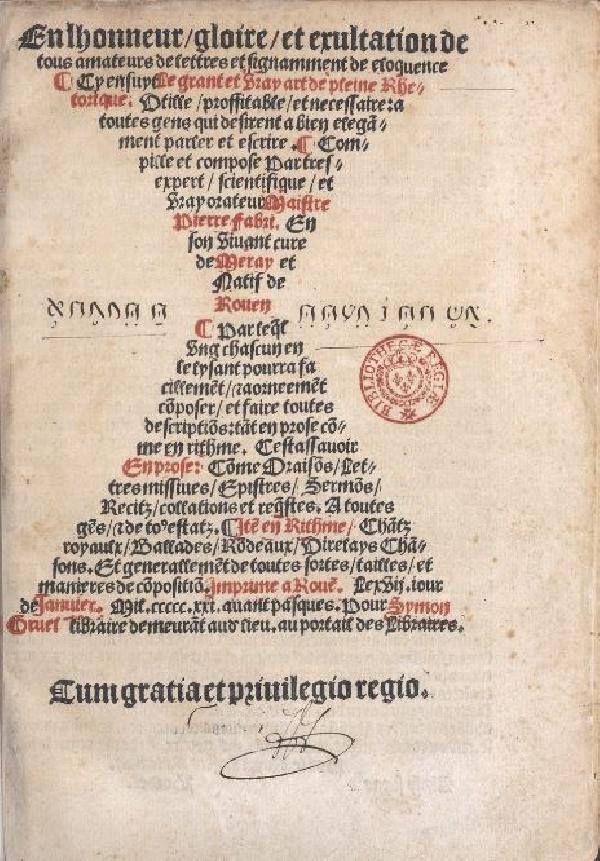 Enlhonneur/gloire/et exultation de
tous amateurs de lettres et signamment de eloquence
Cy ensuyt Le grant et vray art de pleine Rhe-
torique: Utille/proffitable/et necessaire: a
toutes gens qui desirent a bien elegã-
ment parler et escrire. Com-
pille et compose Par tres-
expert/scientifique/et
vray orateur Maistre
Pierre Fabri. En
son vivant cure
de Meray et
Natif de
Rouen
Par leq̃l
vng chascun en
le lysant pourra fa
cillemẽt/⁊ aornement
cõposer/et faire toutes
descriptiõs: tãt en prose cõ-
me en rithme. Cestassauoir
En prose: Cõme Oraisõs/Let-
tres missiues/Epistres/Sermõs/
Recitz/collations et req̃stes. A toutes
gẽs/⁊ de toꝰ estatz. Itẽ en Rithme/Chãtz
royaulx/Ballades/Rõdeaux/Virelays Chã-
sons. Et generallemẽt de toutes sortes/tailles/et
manieres de cõpositiõ. Imprime a Rouẽ. Le xvij. iour
de Januier. Mil.ccccc.xxi. auant pasques. Pour Symon
Gruel libraire demeurãt aud lieu. au portail des Libraires.
BIBLIOTHECÆ REGIÆ
Cum gratia et priuilegio regio.